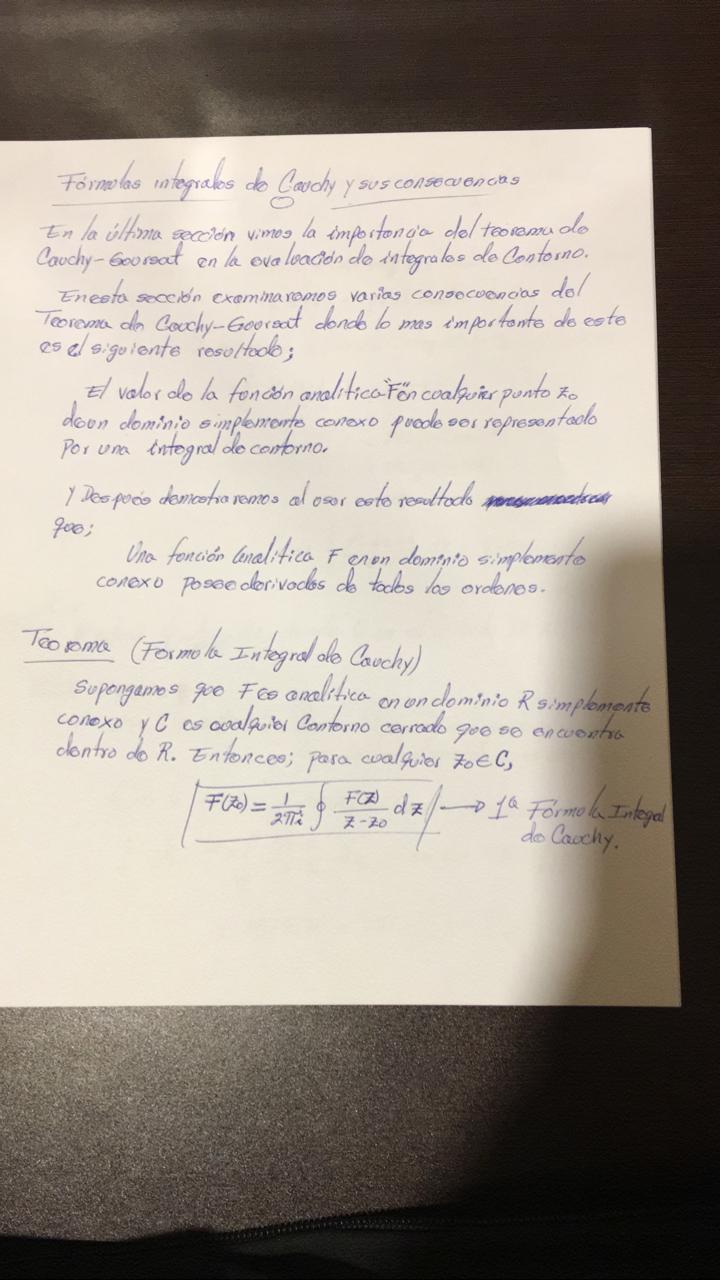 Fórmulas integrales de Cauchy y sus consecuencias
En la última sección vimos la importancia del teorema de
Cauchy-Goursat en la evaluación de integrales de Contorno.
En esta sección examinaremos varias consecuencias del
Teorema de Cauchy-Goursat donde lo mas importante de este
es el siguiente resultado;
El valor de la función analitica "F" en cualquier punto z₀
de un dominio simplemente conexo puede ser representado
Por una integral de contorno.
Y Después demostraremos al usar este resultado
que;
Una función analitica F en un dominio simplemente
conexo posee derivadas de todos los ordenes.
Teorema (Formula Integral de Cauchy)
Supongamos que F es analitica en un dominio R simplemente
conexo y C es cualquier Contorno cerrado que se encuentra
dentro de R. Entonces; para cualquier z₀ ∈ C,
F(z₀) = 1/2πi ∮ F(z)/z-z₀ dz → 1ª Fórmula Integal
de Cauchy.